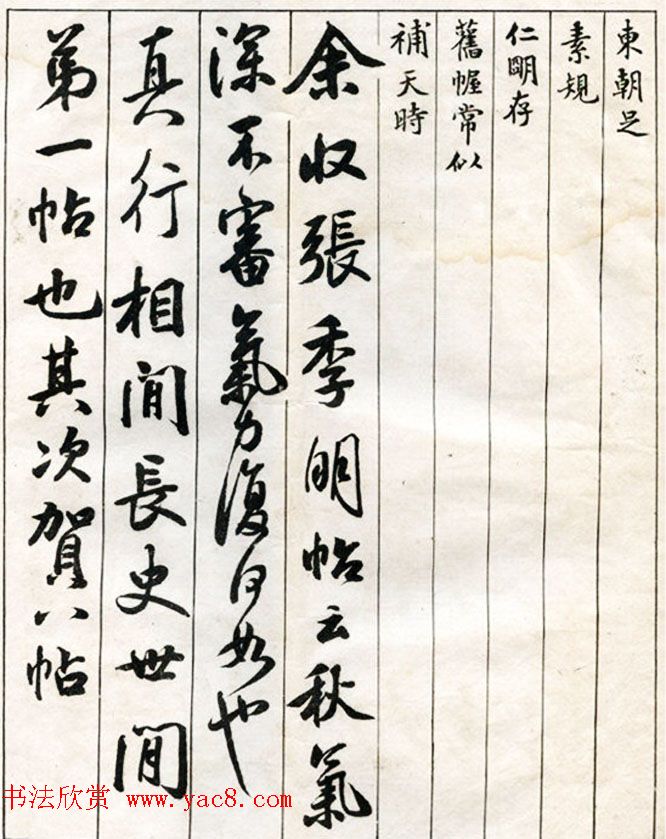 東朝足
素規
仁朙存
舊幄常似
補天時
余收張季明帖云秋氣
深不審氣力復何如也
真行相間長史世間
第一帖也其次賀八帖
书法欣赏 www.yac8.com